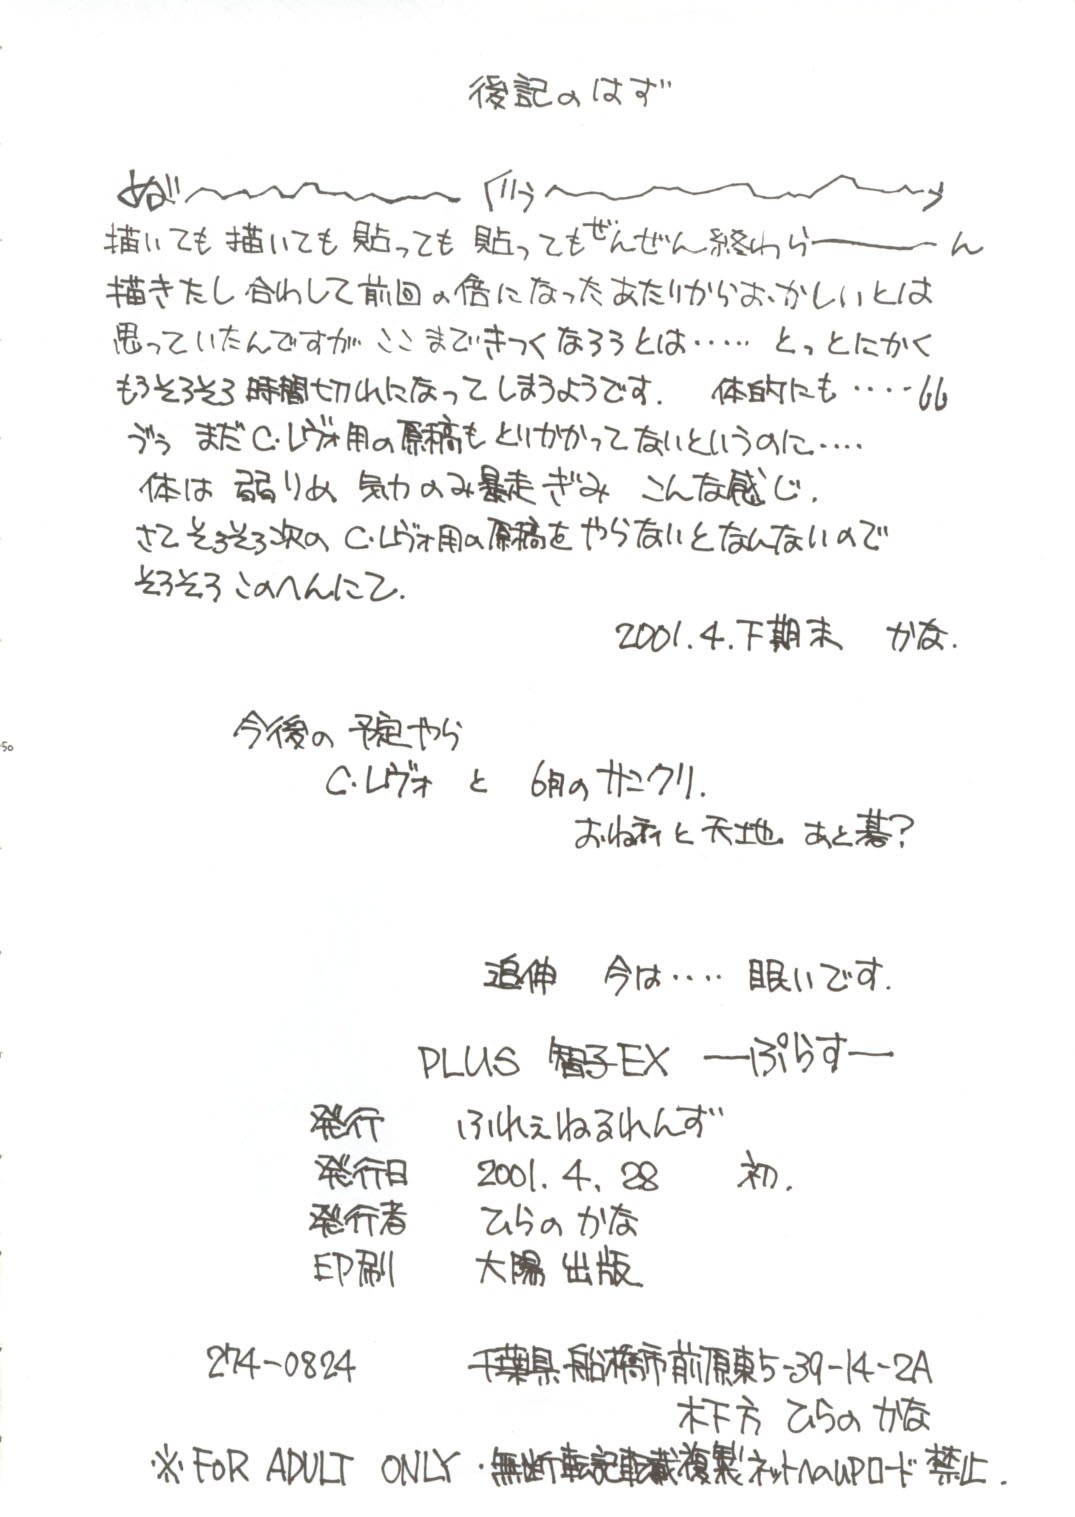 後記のはず
ぬ゛〜〜〜 ぐぅ〜〜〜
描いても描いても貼っても貼ってもぜんぜん終わら――ん
描きたし合わして前回の倍になったあたりからおかしいとは
思っていたんですがここまできつくなろうとは‥‥‥ とっとにかく
もうそろそろ時間切れになってしまうようです. 体的にも ‥‥
づぅ まだC・レヴォ用の原稿もとりかかってないというのに‥‥
体は弱りめ 気力のみ暴走ぎみ こんな感じ.
さてそろそろ次のC・レヴォ用の原稿をやらないとなんないので
そろそろこのへんにて.
2001.4.下期末 かな.
今後の予定やら
C・レヴォ と 6月のサンクリ.
おねﾃｨと天地 あと碁?
追伸 今は‥‥ 眠いです.
PLUS 智子EX ―ぷらす―
発行 ふれぇねるれんず
発行日 2001.4.28 初.
発行者 ひらのかな
印刷 大陽出版
274-0824 千葉県船橋市前原東5-39-14-2A
木下方 ひらのかな
※FOR ADULT ONLY・無断転記転載複製ネットへのUPロード禁止.
50